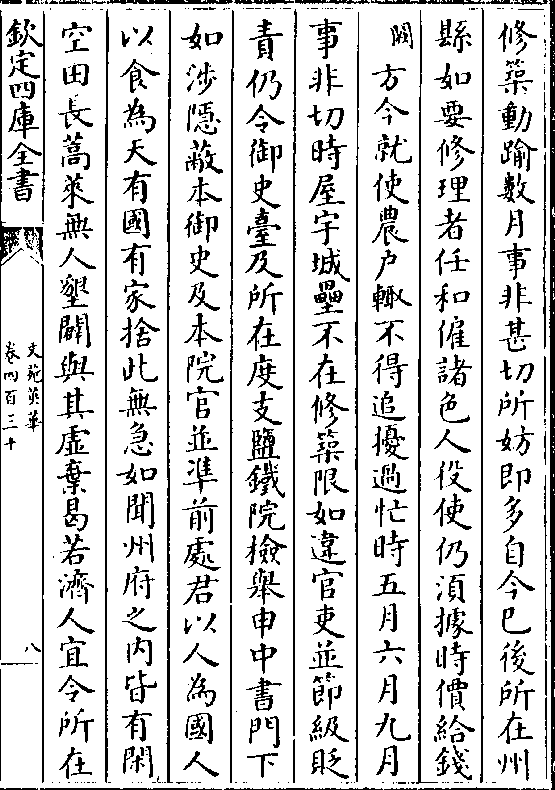 修築動踰數月事非甚切所妨即多自今已後所在州
縣如要修理者任和雇諸色人役使仍湏據時價給錢
闕方今就使農户輙不得追擾過忙時五月六月九月
事非切時屋宇城壘不在修築限如違官吏並節級貶
責仍令御史臺及所在度支鹽鐵院檢舉申中書門下
如涉隱蔽本御史及本院官並凖前處君以人為國人
以食為天有國有家捨此無急如聞州府之内皆有閑
空田長蒿萊無人墾闢與其虚棄曷若濟人宜令所在
欽定四庫全書
文苑英華
卷四百三十
八